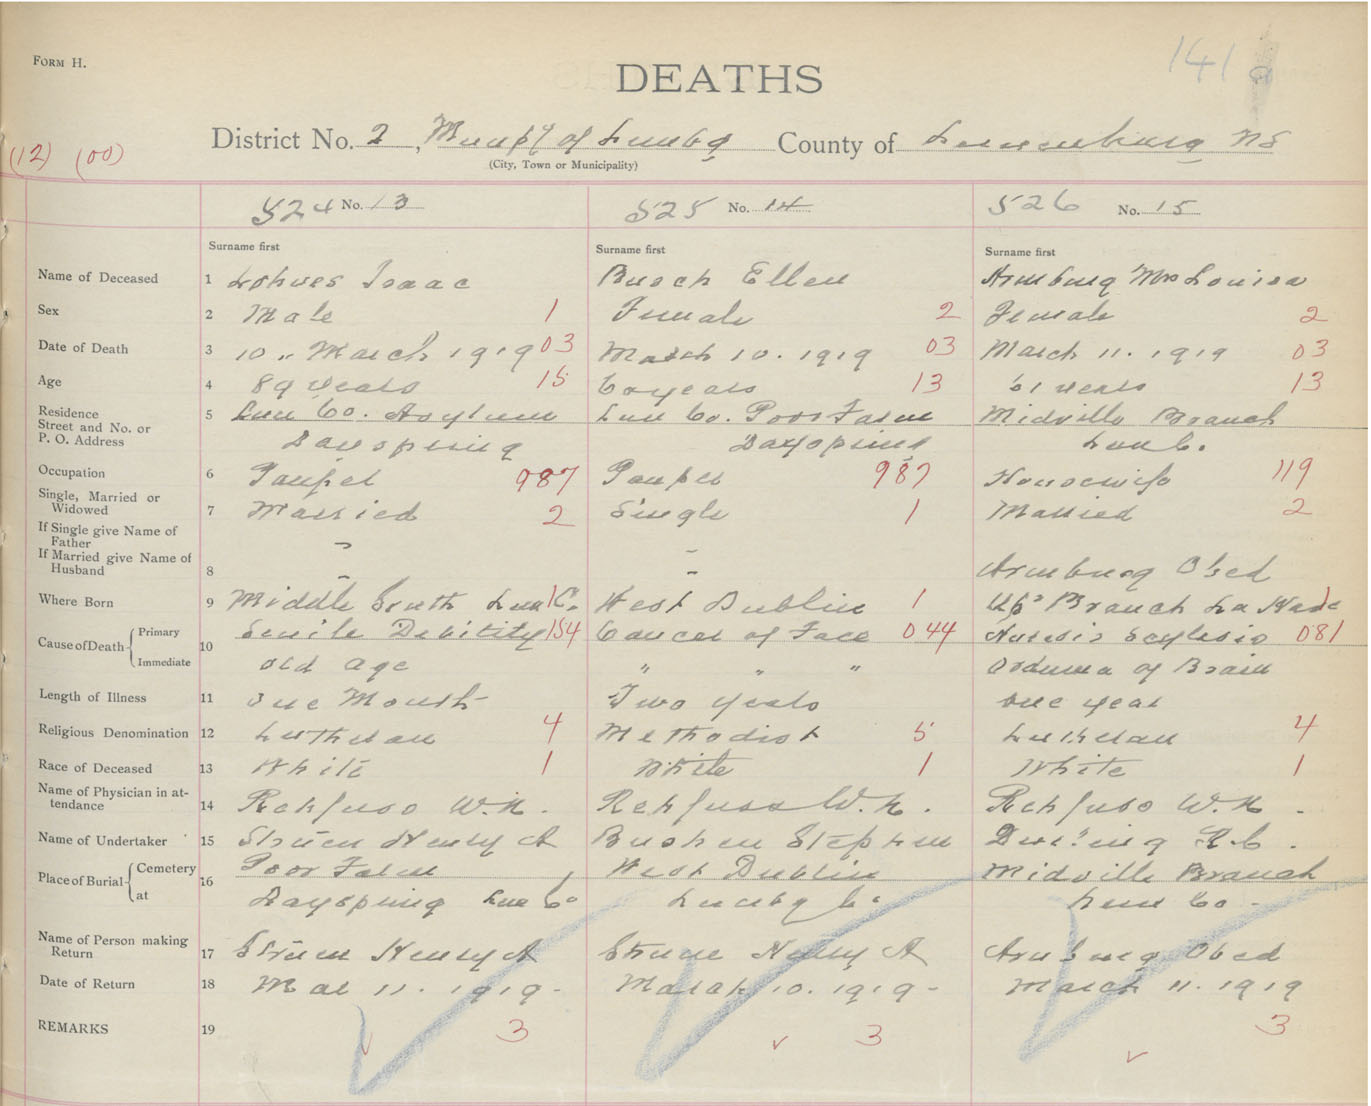 Form H.
141
DEATHS
District No. 2, Muncpy of Lunbg County of Lunenburg NS
(City, Town or Municipality)
(12) (00)
524 No. 13 525 No. 14 526 No. 15
Surname first Surname first Surname first
Name of Deceased 1 Lohnes Isaac Busch Ellen Armburg Mrs Louisa
Sex 2 Male 1 Female 2 Female 2
Date of Death 3 10 .. March 1919 03 March 10. 1919 03 March 11. 1919 03
Age 4 89 years 15 60 years 13 61 years 13
Residence 5 Lun Co. Asylum Lun Co. Poor Farm Midville Branch
Street and No. or
P. O. Address Dayspring Dayspring Lun C.
Occupation 6 Pauper 987 Pauper 987 Housewife 119
Single, Married or
Widowed 7 Married 2 Single 1 Married 2
If Single give Name of
Father
If Married give Name of
Husband 8 Armburg Obed
Where Born 9 Middle South Lun Co. 1 West Dublin 1 Upr Branch La Have 1
Cause of Death Primary 10 Senile Debility 154 Cancer of Face 044 081
Immediate old age " " " of Brain
Length of Illness 11 One Month Two years one year
Religious Denomination 12 Lutheran 4 Methodist 5 Lutheran 4
Race of Deceased 13 White 1 White 1 White 1
Name of Physician in at-
tendance 14 Rehfuss W.N. Rehfuss W.N. Rehfuss W.N.
Name of Undertaker 15 Strum Henry A Bushen Stephen
Place of Burial Cemetery 16 Poor Farm West Dublin Midville Branch
at Dayspring Lun Co Lunbg Co Lun Co -
Name of Person making
Return 17 Strum Henry A Strum Henry A Armburg Obed
Date of Return 18 Mar 11. 1919 - March 10. 1919 - March 11. 1919
REMARKS 19 3 3 3